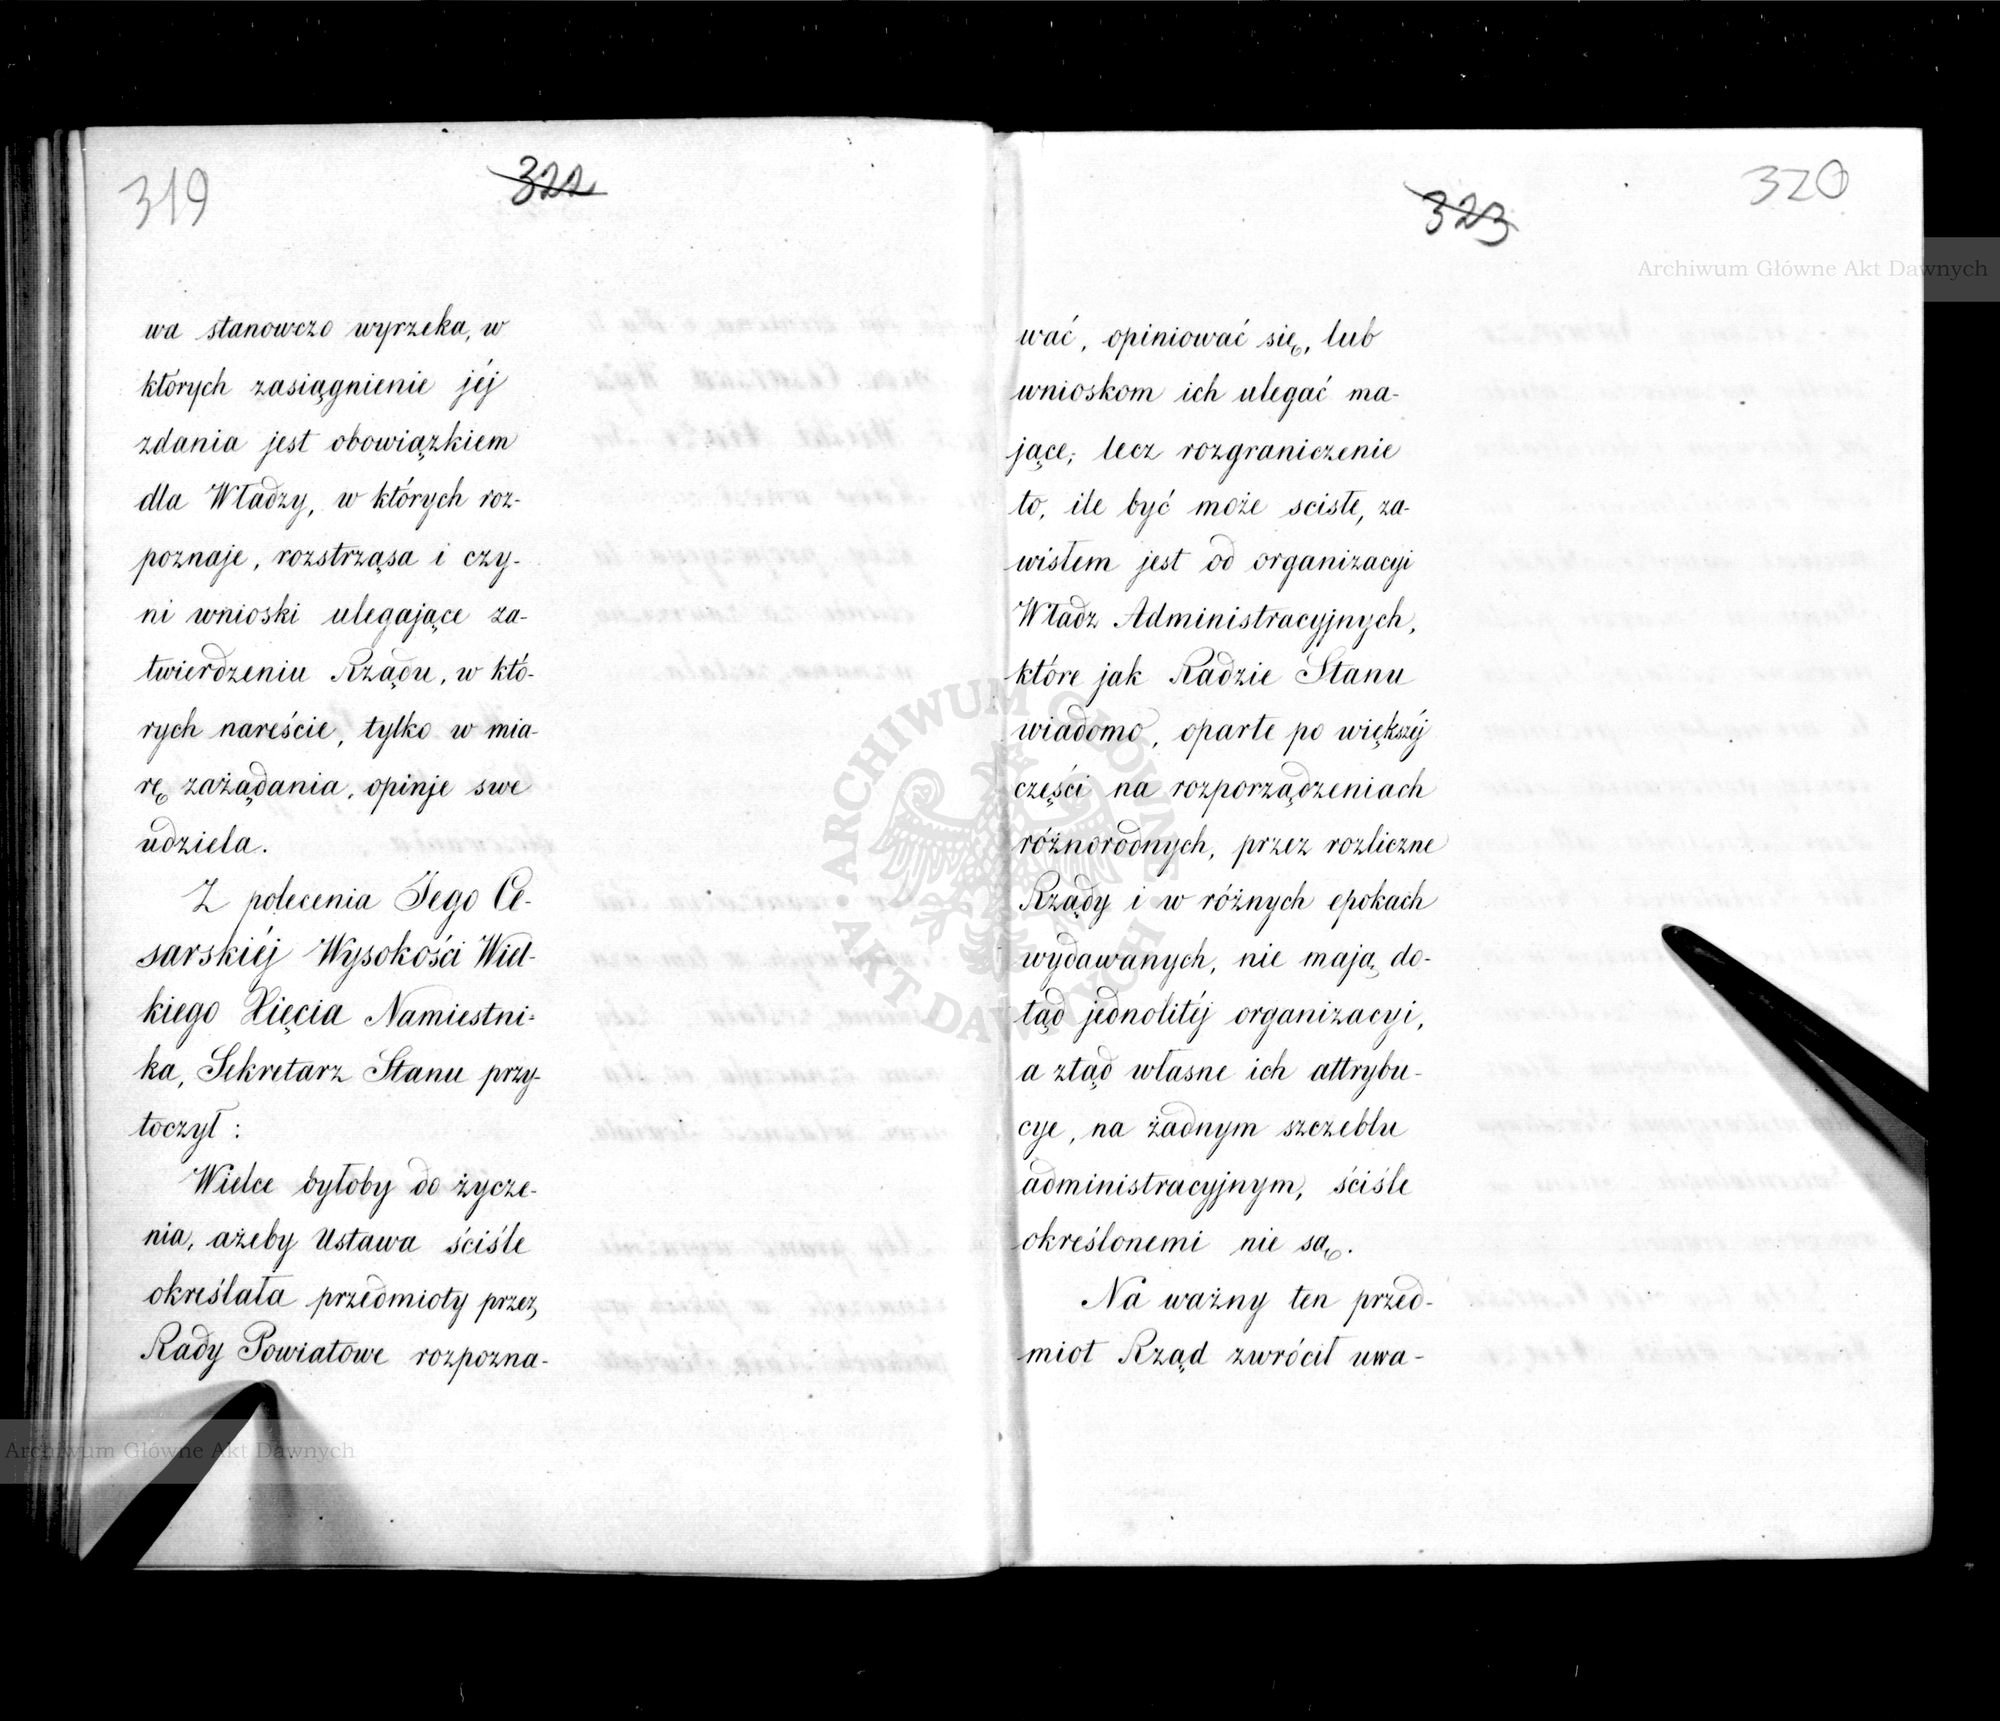 319
322
wa stanowczo wyrzeka, w
których zasiągnienie jéj
zdania jest obowiązkiem
dla Władzy, w których roz-
poznaje, rozstrząsa i czy-
ni wnioski ulegające za-
twierdzeniu Rządu, w któ-
rych nareście, tylko w mia-
rę zażądania, opinje swe
udziela.
Z polecenia Jego Ce-
sarskiéj Wysokości Wiel-
kiego Xięcia Namiestni-
ka, Sekretarz Stanu przy-
toczył:
Wielce byłoby do życze-
nia, ażeby Ustawa ściśle
określała przedmioty przez
Rady Powiatowe rozpozna-
Archiwum Główne Akt Dawnych
320
323
Archiwum Główne Akt Dawnych
wać, opiniować się, lub
wnioskom ich ulegać ma-
jące; lecz rozgraniczenie
to, ile być może scisłe, za-
wisłem jest od organizacyi
Władz Administracyjnych,
które jak Radzie Stanu
wiadomo, oparte po większéj
części na rozporządzeniach
różnorodnych, przez rozliczne
Rządy i w różnych epokach
wydawanych, nie mają do-
tąd jednolitéj organizacyi,
a ztąd własne ich attrybu-
cye, na żadnym szczeblu
administracyjnym, ściśle
określonemi nie są.
Na ważny ten przed-
miot Rząd zwrócił uwa-
ARCHIWUM GŁÓWNE AKT DAWNYCH